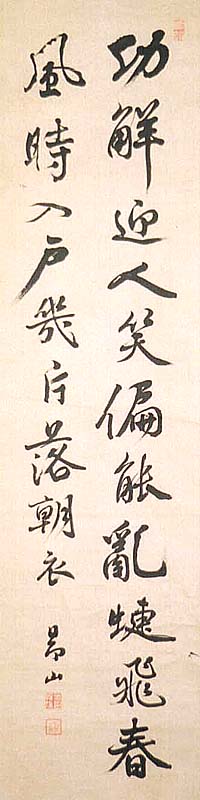 巧觧迎人笑偏能亂蜨飛春
風時入戶幾片落朝衣
山